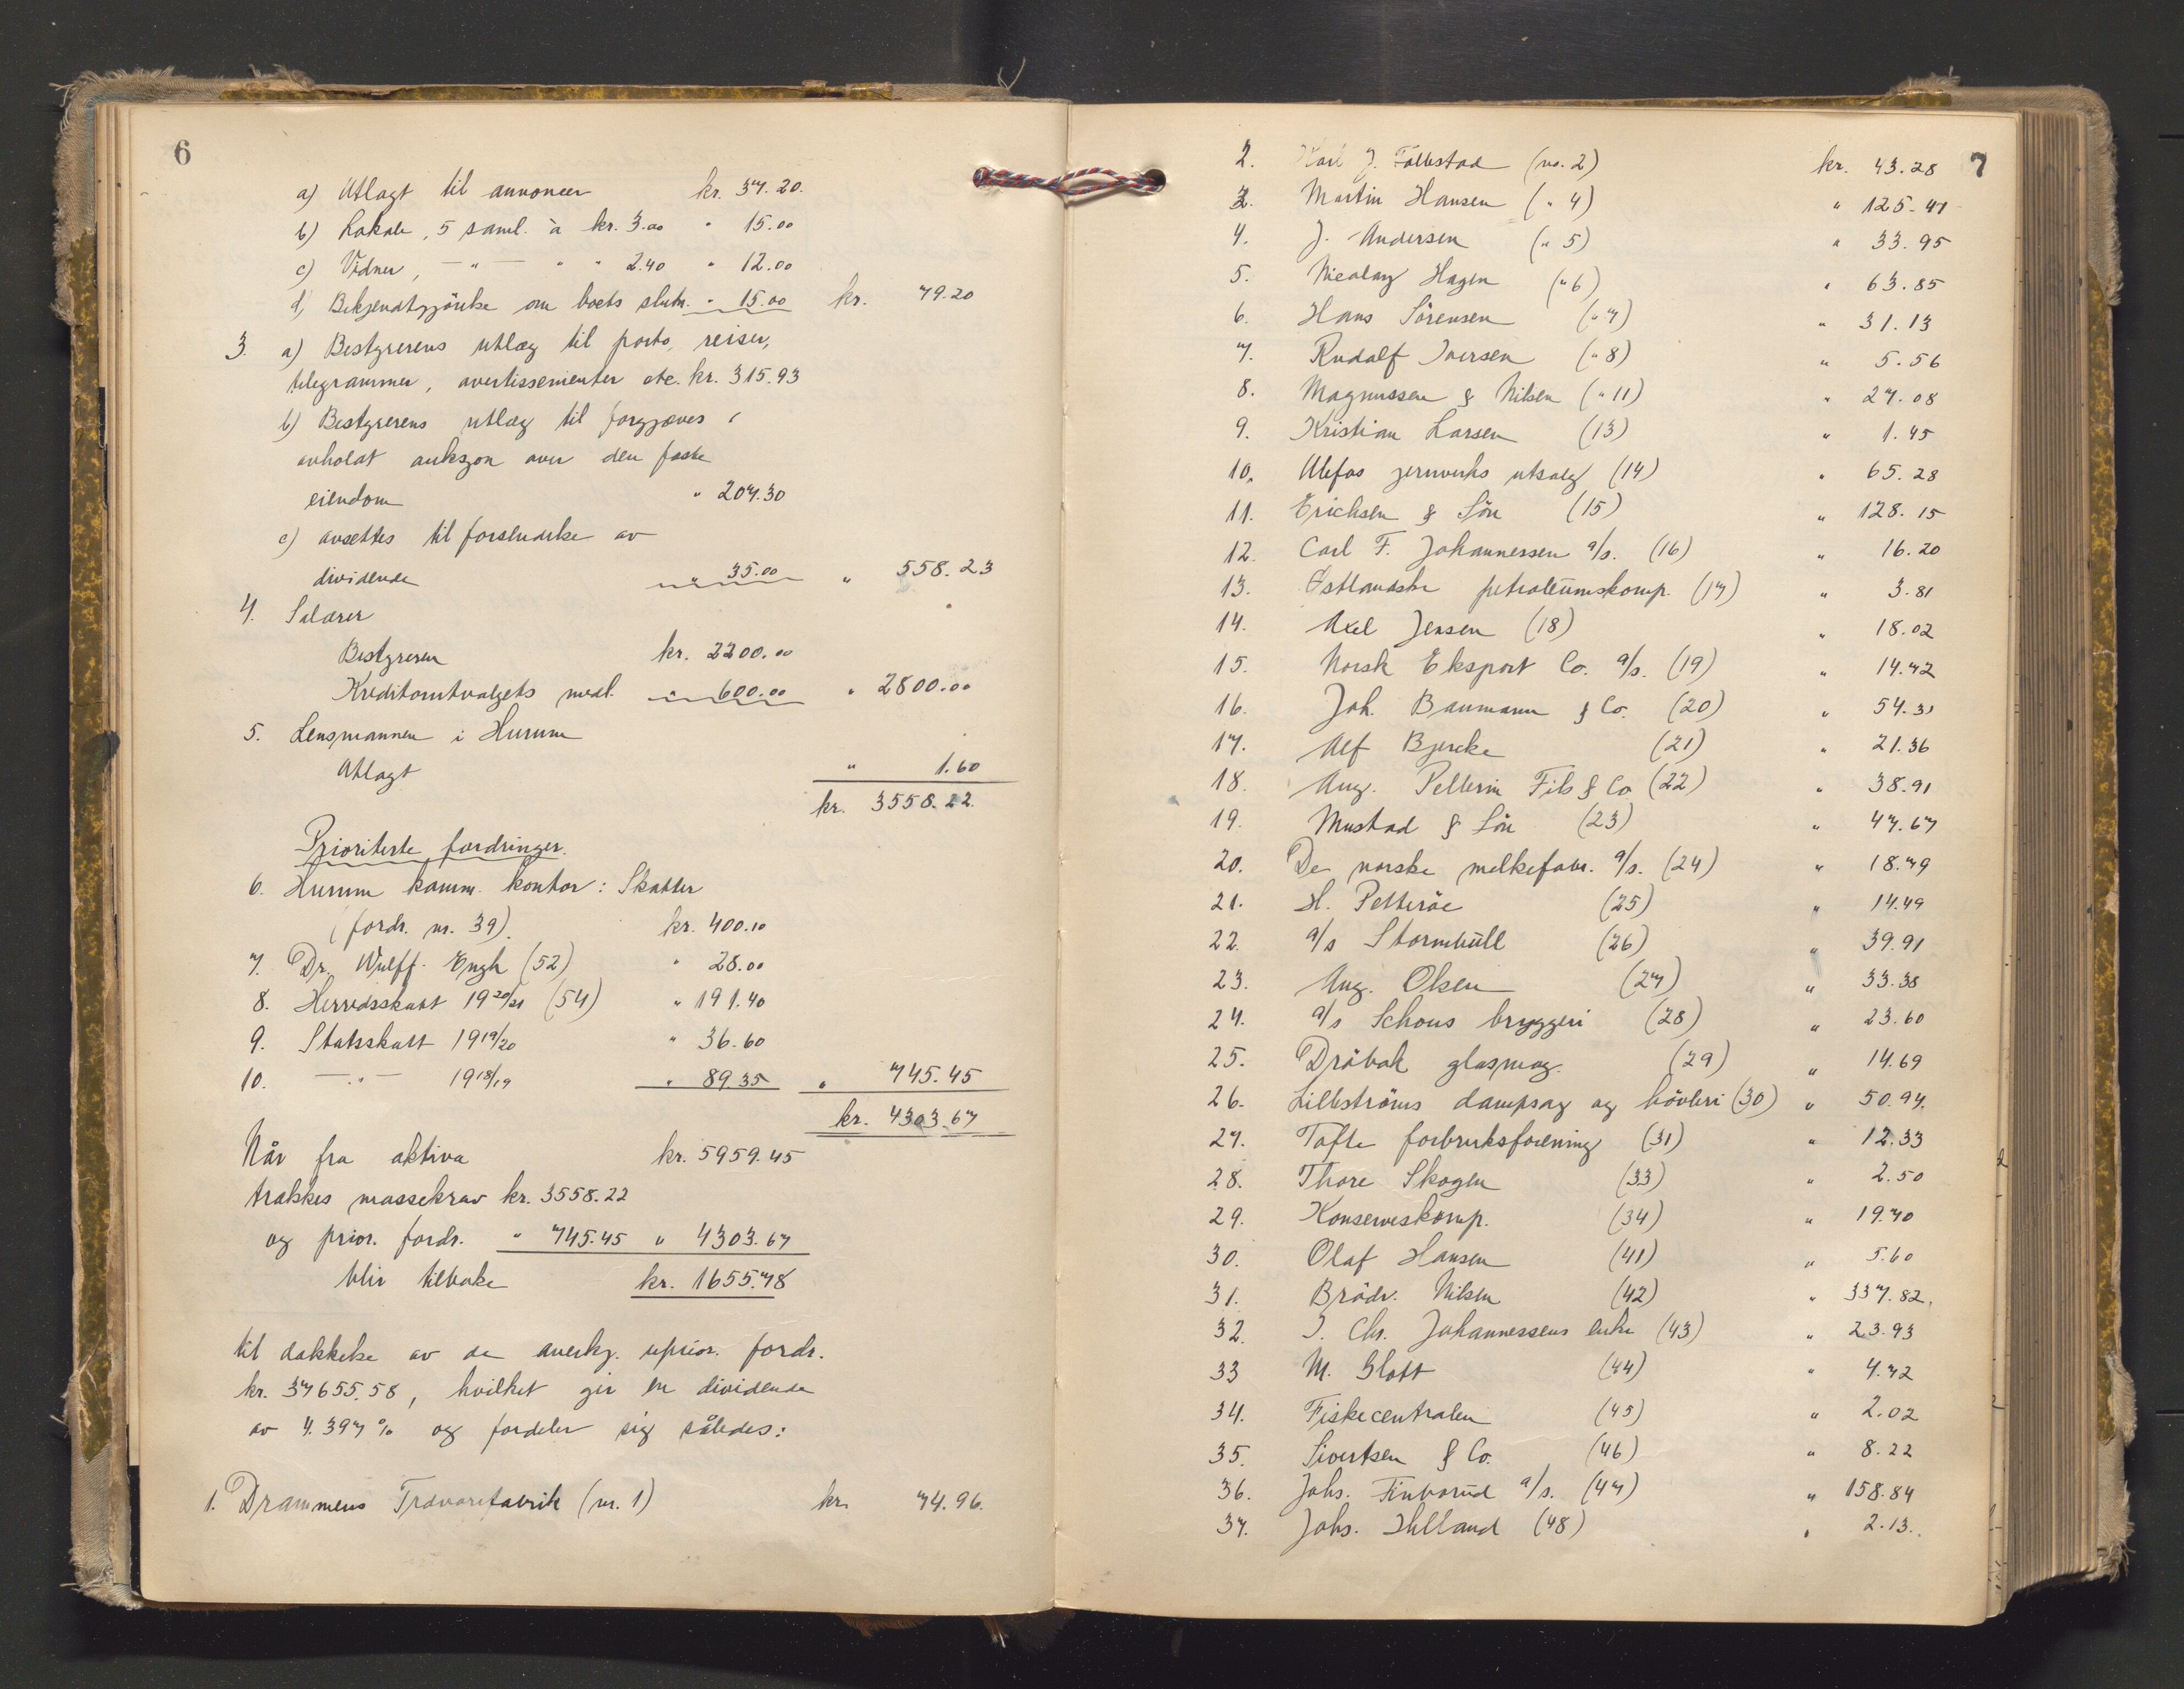 6
a) Utlagt til annoncer kr. 37.20.
b) Lokale, 5 saml. à kr. 3.00 " 15.00
c) Vidner, — " — " " 2.40 " 12.00
d) Bekjendtgjörelse om boets slutn. " 15.00 kr. 79.20
3. a) Bestyrerens utlæg til porto, reiser,
telegrammer, avertissementer etc. kr. 315.93
b) Bestyrerens utlæg til forgjæves
avholdt auksjon over den faste
eiendom " 207.30
c) avsettes til forsendelse av
dividende " 35.00 " 558.23
4. Salærer
Bestyreren kr. 2200.00
Kreditorutvalgets medl. " 600.00 " 2800.00
5. Lensmannen i Hurum
Utlagt " 1.60
kr. 3558.22.
Prioriterte fordringer.
6. Hurum komm. kontor: Skatter
(fordr. nr. 39). kr. 400.10
7. Dr. Wulff-Engh (52) " 28.00
8. Herredsskatt 1920/21 (54) " 191.40
9. Statsskatt 1919/20 " 36.60
10. — " — 1918/19 " 89.35 " 745.45
kr. 4303.67
Når fra aktiva kr. 5959.45
trækkes massekrav kr. 3558.22
og prior. fordr. " 745.45 " 4303.67
blir tilbake kr. 1655.78
til dækkelse av de anerkj. uprior. fordr.
kr. 37655.58, hvilket gir en dividende
av 4.397 % og fordeler sig således:
1. Drammens Trævarefabrik (nr. 1) kr. 74.96.
7
2. Karl J. Follestad (no. 2) kr. 43.28
3. Martin Hansen (" 4) " 125.41
4. J. Andersen (" 5) " 33.95
5. Nicolay Hagen (" 6) " 63.85
6. Hans Sörensen (" 7) " 31.13
7. Rudolf Iversen (" 8) " 5.56
8. Magnussen & Nilsen (" 11) " 27.08
9. Kristian Larsen (13) " 1.45
10. Ulefos jernverks utsalg (14) " 65.28
11. Erichsen & Sön (15) " 128.15
12. Carl F. Johannessen a/s. (16) " 16.20
13. Østlandske petroleumskomp. (17) " 3.81
14. Axel Jensen (18) " 18.02
15. Norsk Eksport Co. a/s. (19) " 14.72
16. Joh. Baumann & Co. (20) " 54.31
17. Alf Bjercke (21) " 21.36
18. Aug. Pellerin Fils & Co (22) " 38.91
19. Mustad & Sön (23) " 47.67
20. De norske melkefabr. a/s. (24) " 18.79
21. H. Petteröe (25) " 14.49
22. a/s Stormbull (26) " 39.91
23. Aug. Olsen (27) " 33.38
24. a/s Schous bryggeri (28) " 23.60
25. Dröbak glasmag. (29) " 14.69
26. Lilleströms dampsag og hövleri (30) " 50.97.
27. Tofte forbruksforening (31) " 12.33
28. Thore Skogen (33) " 2.50
29. Konserveskomp. (34) " 19.70
30. Olaf Hansen (41) " 5.60
31. Brödr. Nilsen (42) " 337.82.
32. J. Chr. Johannessens enke (43) " 23.93
33 M. Glott (44) " 4.72
34. Fiskecentralen (45) " 2.02
35. Sivertsen & Co. (46) " 8.22
36. Johs. Finborud a/s. (47) " 158.84
37. Johs. Ihlland (48) " 2.13.